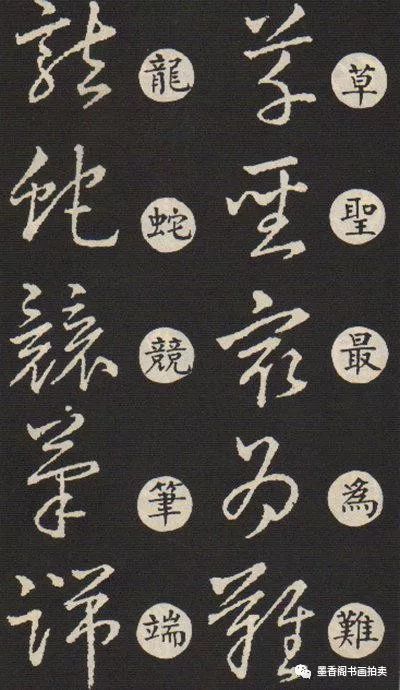 草聖最為難
龍蛇競筆端
墨香阁书画拍卖